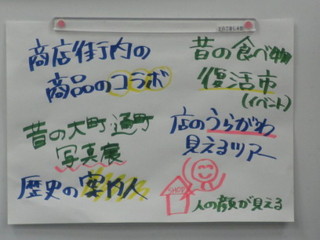 商店街内の
商品のコラボ
昔の大町・通町
写真展
歴史の案内人
昔の食べ物
復活市
(イベント)
店のうらがわ
見えるツアー
人の顔が見える